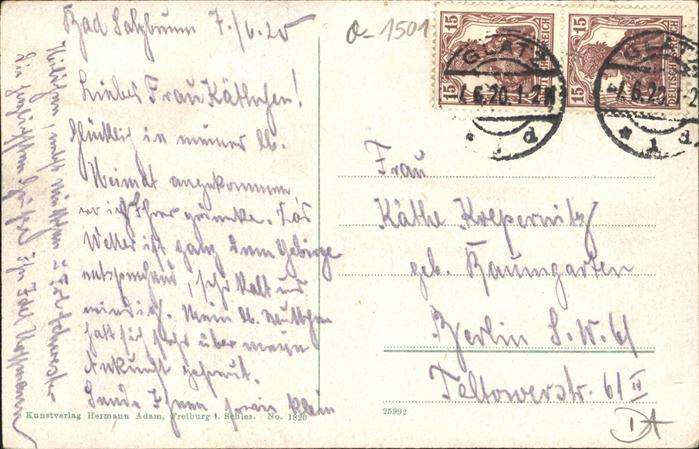 Bad Salzbrunn 7./6.20
Q-1501
15 15
DEUTSCHES REICH
GLATZ
7.6.20.1-2N
* 1 d
Liebes Frau Käthchen!
Glücklich in meiner lb.
Heimat angekommen
ich Ihrer gedenke. Das
Wetter ist ganz dem Gebirge
entsprechend, sehr kalt und
windig. Mein lb. Muttchen
hatte sich sehr über meine
Ankunft gefreut.
Sende Ihnen sowie Klein
die herzlichsten Grüße Ihr
Frau
Käthe
geb. Baumgarten
Berlin S.W. 61
Teltowerstr. 61 II
Kunstverlag Hermann Adam, Freiburg i. Schles. No. 1820
25992